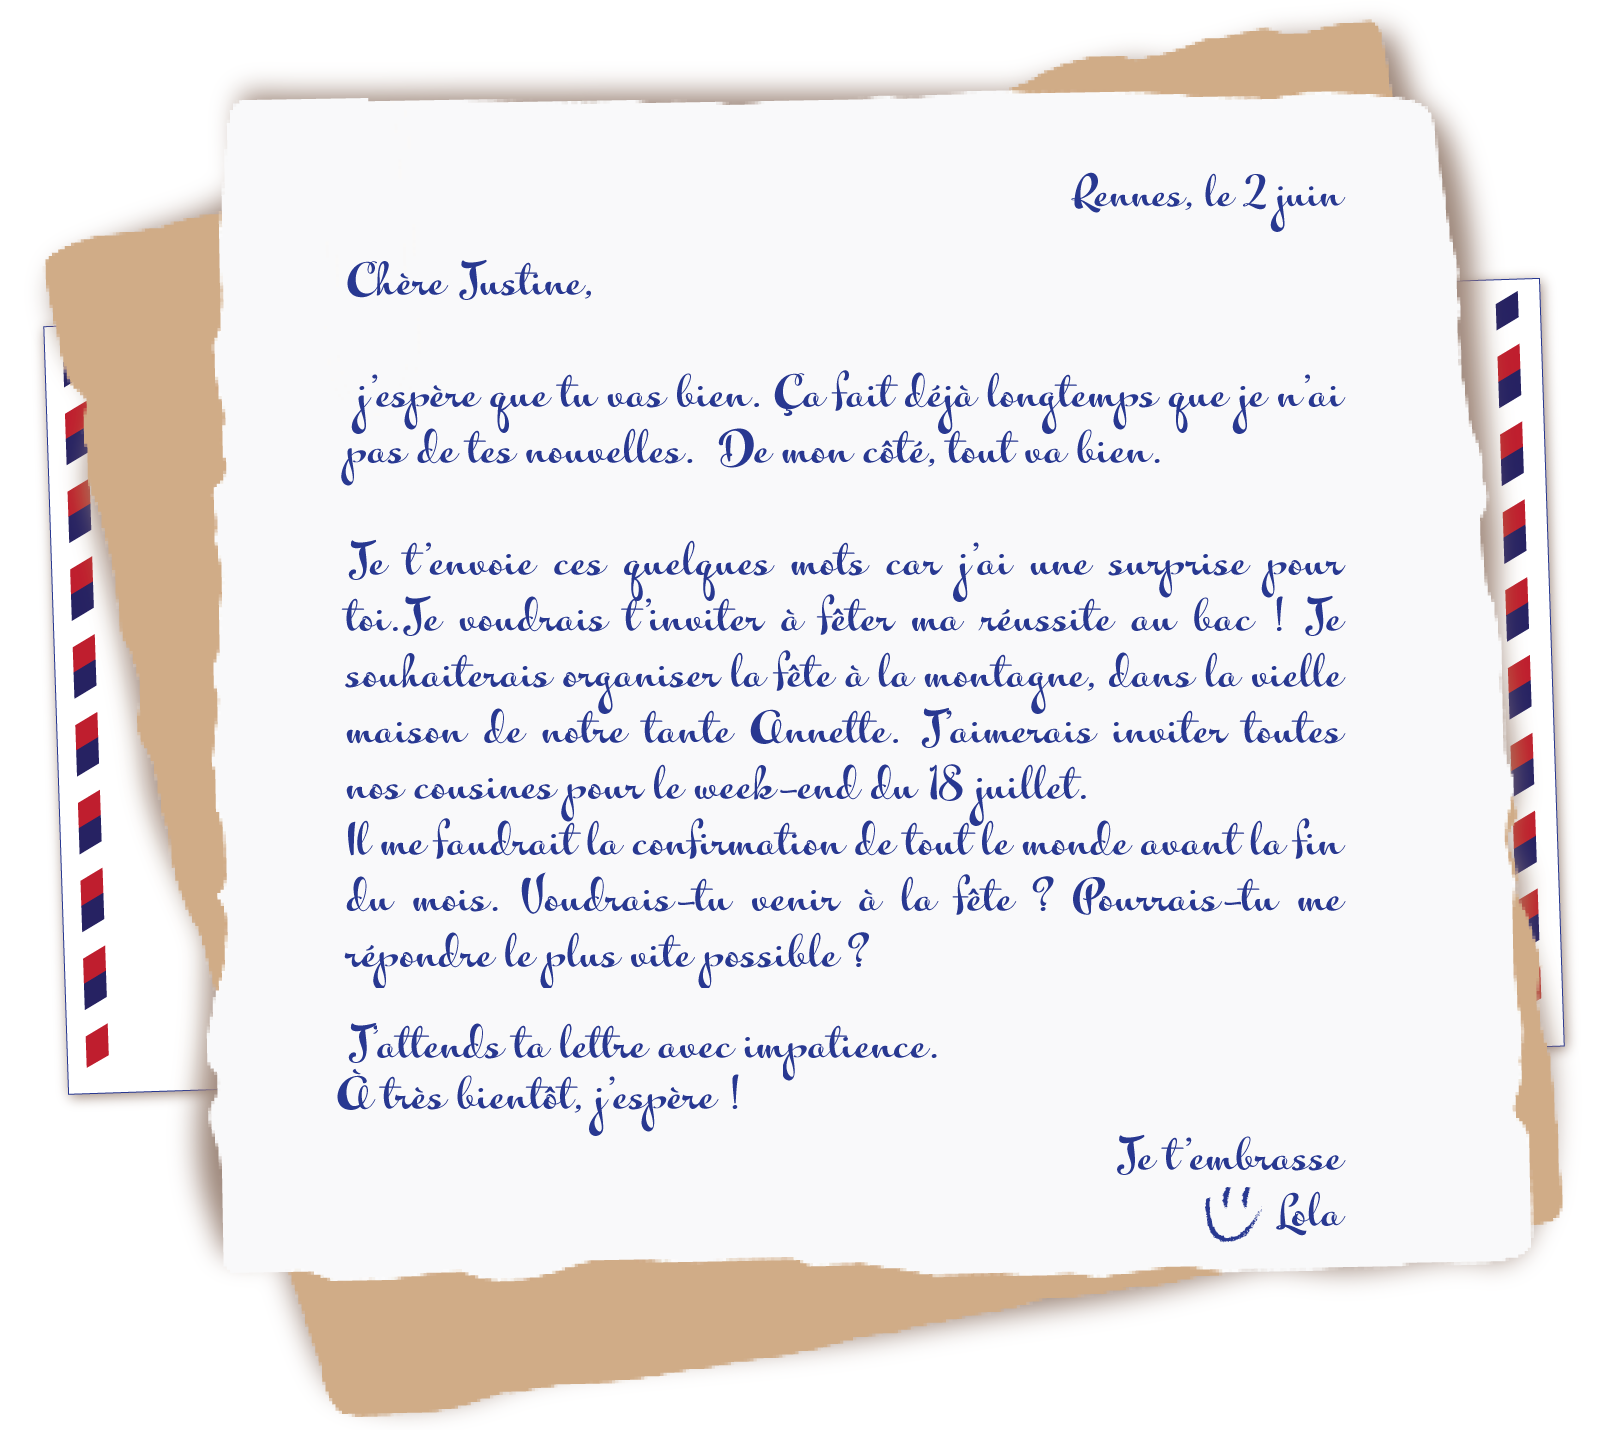 Rennes, le 2 juin
Chère Justine,
j'espère que tu vas bien. Ça fait déjà longtemps que je n'ai
pas de tes nouvelles. De mon côté, tout va bien.
Je t'envoie ces quelques mots car j'ai une surprise pour
toi.Je voudrais t'inviter à fêter ma réussite au bac ! Je
souhaiterais organiser la fête à la montagne, dans la vielle
maison de notre tante Annette. J'aimerais inviter toutes
nos cousines pour le week-end du 18 juillet.
Il me faudrait la confirmation de tout le monde avant la fin
du mois. Voudrais-tu venir à la fête ? Pourrais-tu me
répondre le plus vite possible ?
J'attends ta lettre avec impatience.
À très bientôt, j'espère !
Je t'embrasse
Lola